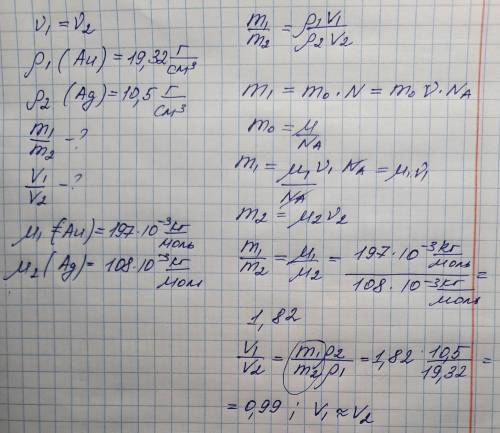 ν₁ = ν₂
ρ₁ (Au) = 19,32 г/см³
ρ₂ (Ag) = 10,5 г/см³
m₁/m₂ - ?
V₁/V₂ - ?
μ₁ = (Au) = 197·10⁻³ кг/моль
μ₂ (Ag) = 108·10⁻³ кг/моль
m₁/m₂ = ρ₁V₁/ρ₂V₂
m₁ = m₀·N = m₀ ν·N_A
m₀ = μ/N_A
m₁ = μ₁ν₁/N_A N_A = μ₁ν₁
m₂ = μ₂ν₂
m₁/m₂ = μ₁/μ₂ = 197·10⁻³ кг/моль / 108·10⁻³ кг/моль =
1,82
V₁/V₂ = m₁ρ₂/m₂ρ₁ = 1,82·10,5/19,32 =
= 0,99 ; V₁ ≈ V₂